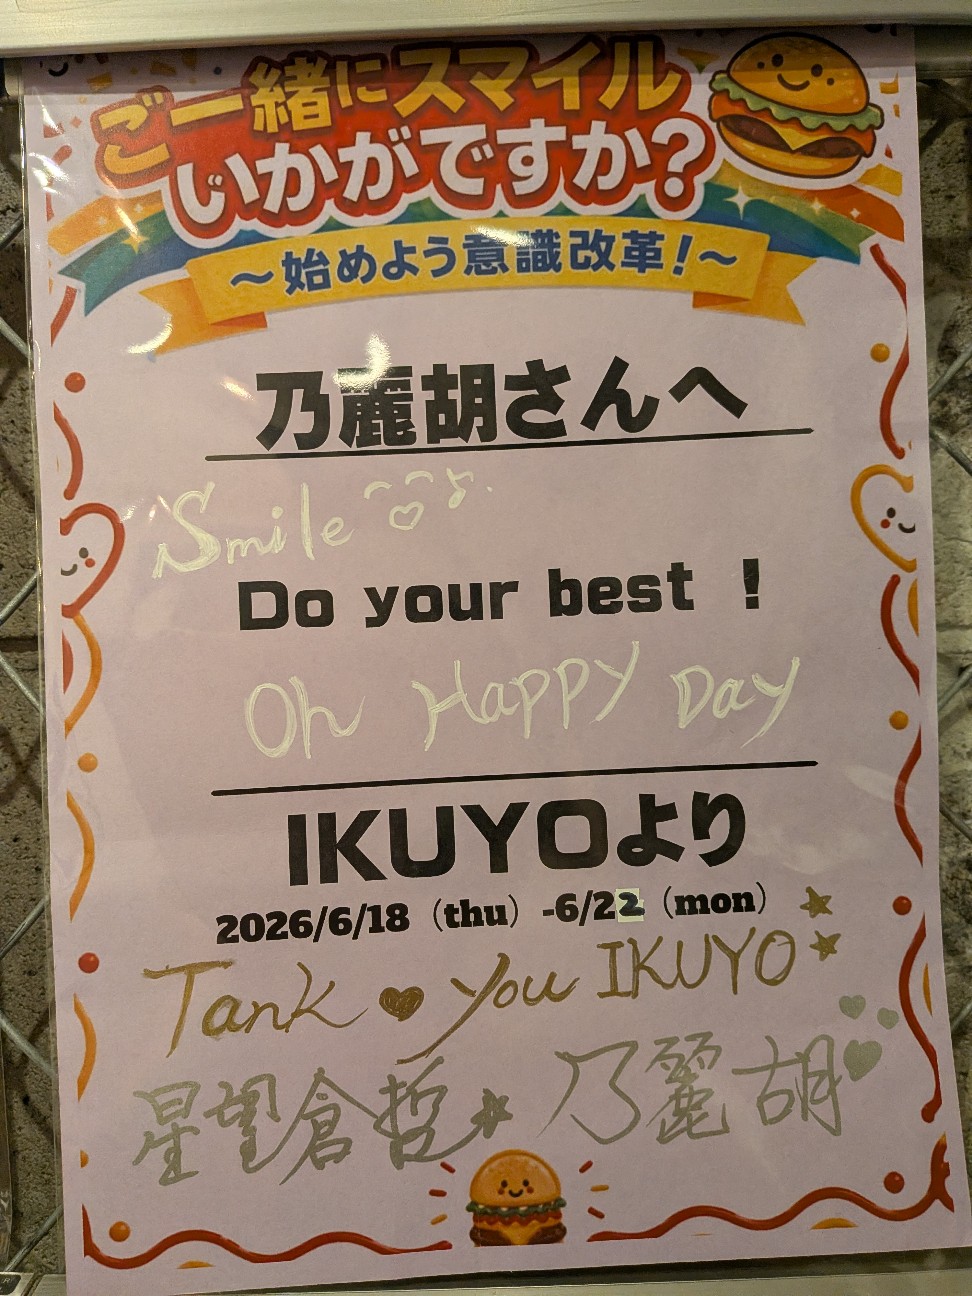 ご一緒にスマイル
いかがですか?
～始めよう意識改革!～
乃麗胡さんへ
Smile
Do your best !
Oh Happy Day
IKUYOより
2026/6/18（thu）-6/22（mon）
Tank you IKUYO
星望倉哲 乃麗胡